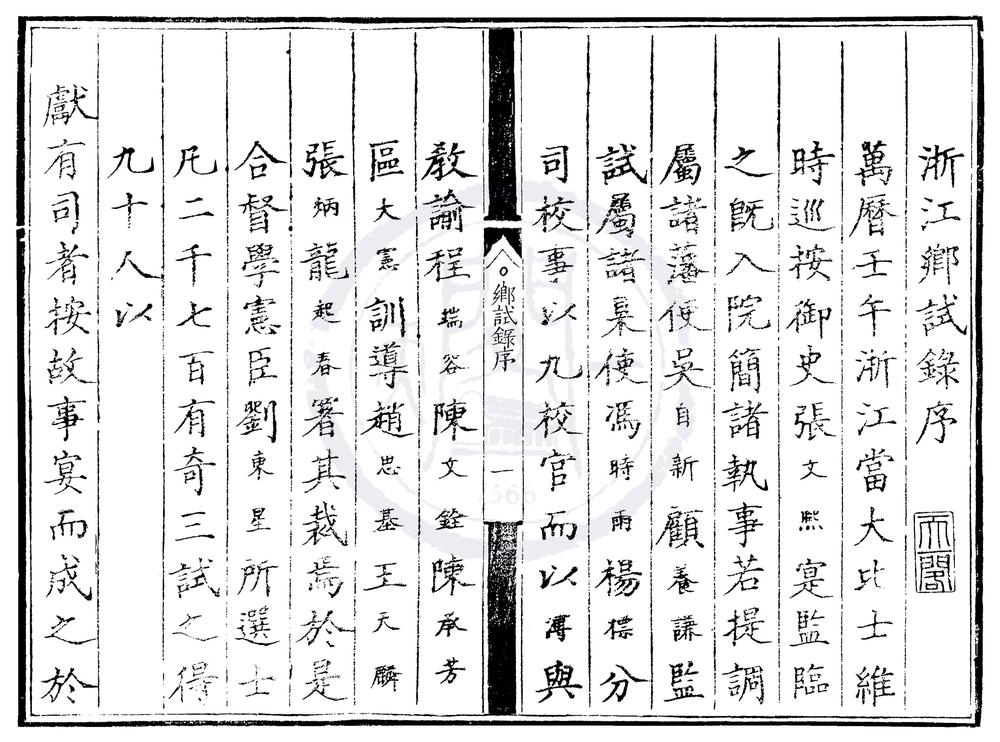 浙江鄉試錄序
天閣
萬曆壬午浙江當大比士維
時巡按御史張文熙寔監臨
之旣入院簡諸執事若提調
屬諸藩使吳自新顧養謙監
試屬諸臬使馮時雨楊標分
司校事以九校官而以溥與
鄉試錄序
一
教諭程瑞谷陳文銓陳承芳
區大憲訓導趙忠基王天麟
張炳龍起春署其裁焉於是
合督學憲臣劉東星所選士
凡二千七百有奇三試之得
九十人以
獻有司者按故事宴而成之於